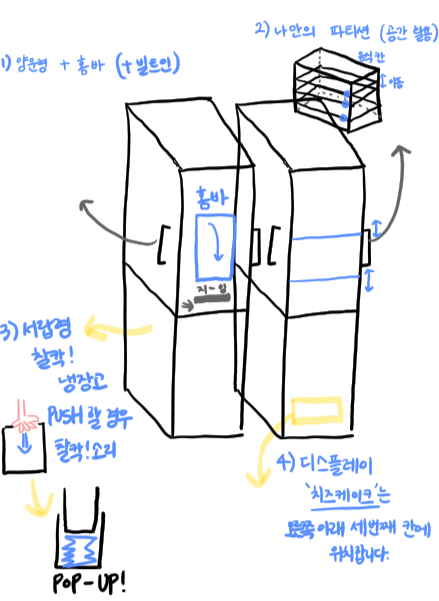 1) 양문형 + 홈바 (+빌트인)
2) 나만의 파티션 (공간 활용)
음식칸
이동
홈바
지-잉
3) 서랍형
찰칵!
냉장고
PUSH 할 경우
찰칵!소리
POP-UP!
4) 디스플레이
'치즈케이크'는
오른쪽 아래 세번째 칸에
위치합니다.